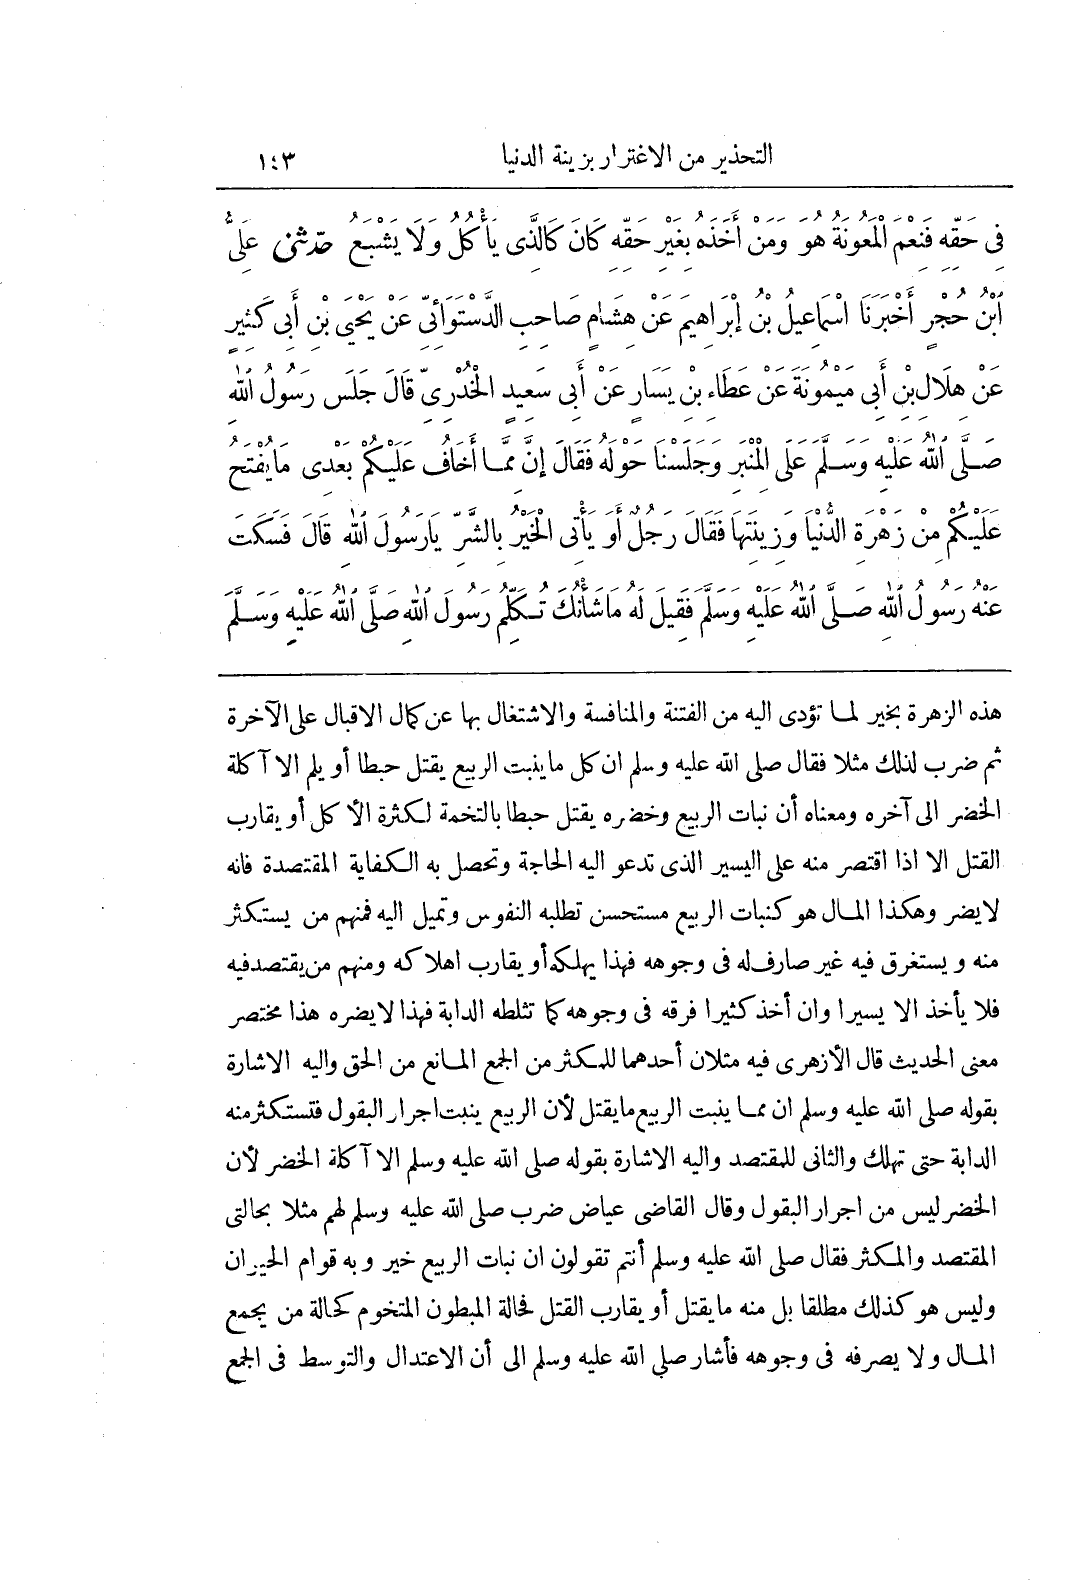 التحذير من الاغترار بزينة الدنيا ١٤٣
فِي حَقِّهِ فَنِعْمَ الْمَعُونَةُ هُوَ وَمَنْ أَخَذَهُ بِغَيْرِ حَقِّهِ كَانَ كَالَّذِى يَأْكُلُ وَلَا يَشْبَعُ حَدَّثَنِى عَلِىُّ
ابْنُ حُجْرٍ أَخْبَرَنَا اسْمَاعِيلُ بْنُ إِبْرَاهِيمَ عَنْ هِشَامٍ صَاحِبِ الدَّسْتَوَائِىِّ عَنْ يَحْيَى بْنِ أَبِى كَثِيرٍ
عَنْ هِلَالِ بْنِ أَبِى مَيْمُونَةَ عَنْ عَطَاءِ بْنِ يَسَارٍ عَنْ أَبِى سَعِيدٍ الْخُدْرِىِّ قَالَ جَلَسَ رَسُولُ اللهِ
صَلَّى اللهُ عَلَيْهِ وَسَلَّمَ عَلَى الْمِنْبَرِ وَجَلَسْنَا حَوْلَهُ فَقَالَ إِنَّ مِمَّا أَخَافُ عَلَيْكُمْ بَعْدِى مَا يُفْتَحُ
عَلَيْكُمْ مِنْ زَهْرَةِ الدُّنْيَا وَزِينَتِهَا فَقَالَ رَجُلٌ أَوَ يَأْتِى الْخَيْرُ بِالشَّرِّ يَارَسُولَ اللهِ قَالَ فَسَكَتَ
عَنْهُ رَسُولُ اللهِ صَلَّى اللهُ عَلَيْهِ وَسَلَّمَ فَقِيلَ لَهُ مَا شَأْنُكَ تُكَلِّمُ رَسُولَ اللهِ صَلَّى اللهُ عَلَيْهِ وَسَلَّمَ
هذه الزهرة بخير لما تؤدى اليه من الفتنة والمنافسة والاشتغال بها عن كمال الاقبال على الآخرة
ثم ضرب لذلك مثلا فقال صلى الله عليه وسلم ان كل ما ينبت الربيع يقتل حبطا أو يلم الا آكلة
الخضر الى آخره ومعناه أن نبات الربيع وخضره يقتل حبطا بالتخمة لكثرة الأكل أو يقارب
القتل الا اذا اقتصر منه على اليسير الذى تدعو اليه الحاجة وتحصل به الكفاية المقتصدة فانه
لايضر وهكذا المال هو كنبات الربيع مستحسن تطلبه النفوس وتميل اليه فمنهم من يستكثر
منه ويستغرق فيه غير صارف له فى وجوهه فهذا يهلكه أو يقارب اهلاكه ومنهم من يقتصد فيه
فلا يأخذ الا يسيرا وان أخذ كثيرا فرقه فى وجوهه كما تثلطه الدابة فهذا لايضره هذا مختصر
معنى الحديث قال الأزهرى فيه مثلان أحدهما للمكثر من الجمع المانع من الحق واليه الاشارة
بقوله صلى الله عليه وسلم ان مما ينبت الربيع مايقتل لأن الربيع ينبت اجرار البقول فتستكثر منه
الدابة حتى تهلك والثانى للمقتصد واليه الاشارة بقوله صلى الله عليه وسلم الا آكلة الخضر لأن
الخضر ليس من اجرار البقول وقال القاضى عياض ضرب صلى الله عليه وسلم لهم مثلا بحالتى
المقتصد والمكثر فقال صلى الله عليه وسلم أنتم تقولون ان نبات الربيع خير وبه قوام الحيوان
وليس هو كذلك مطلقا بل منه مايقتل أو يقارب القتل فحالة المبطون المتخوم كحالة من يجمع
المال ولا يصرفه فى وجوهه فأشار صلى الله عليه وسلم الى أن الاعتدال والتوسط فى الجمع